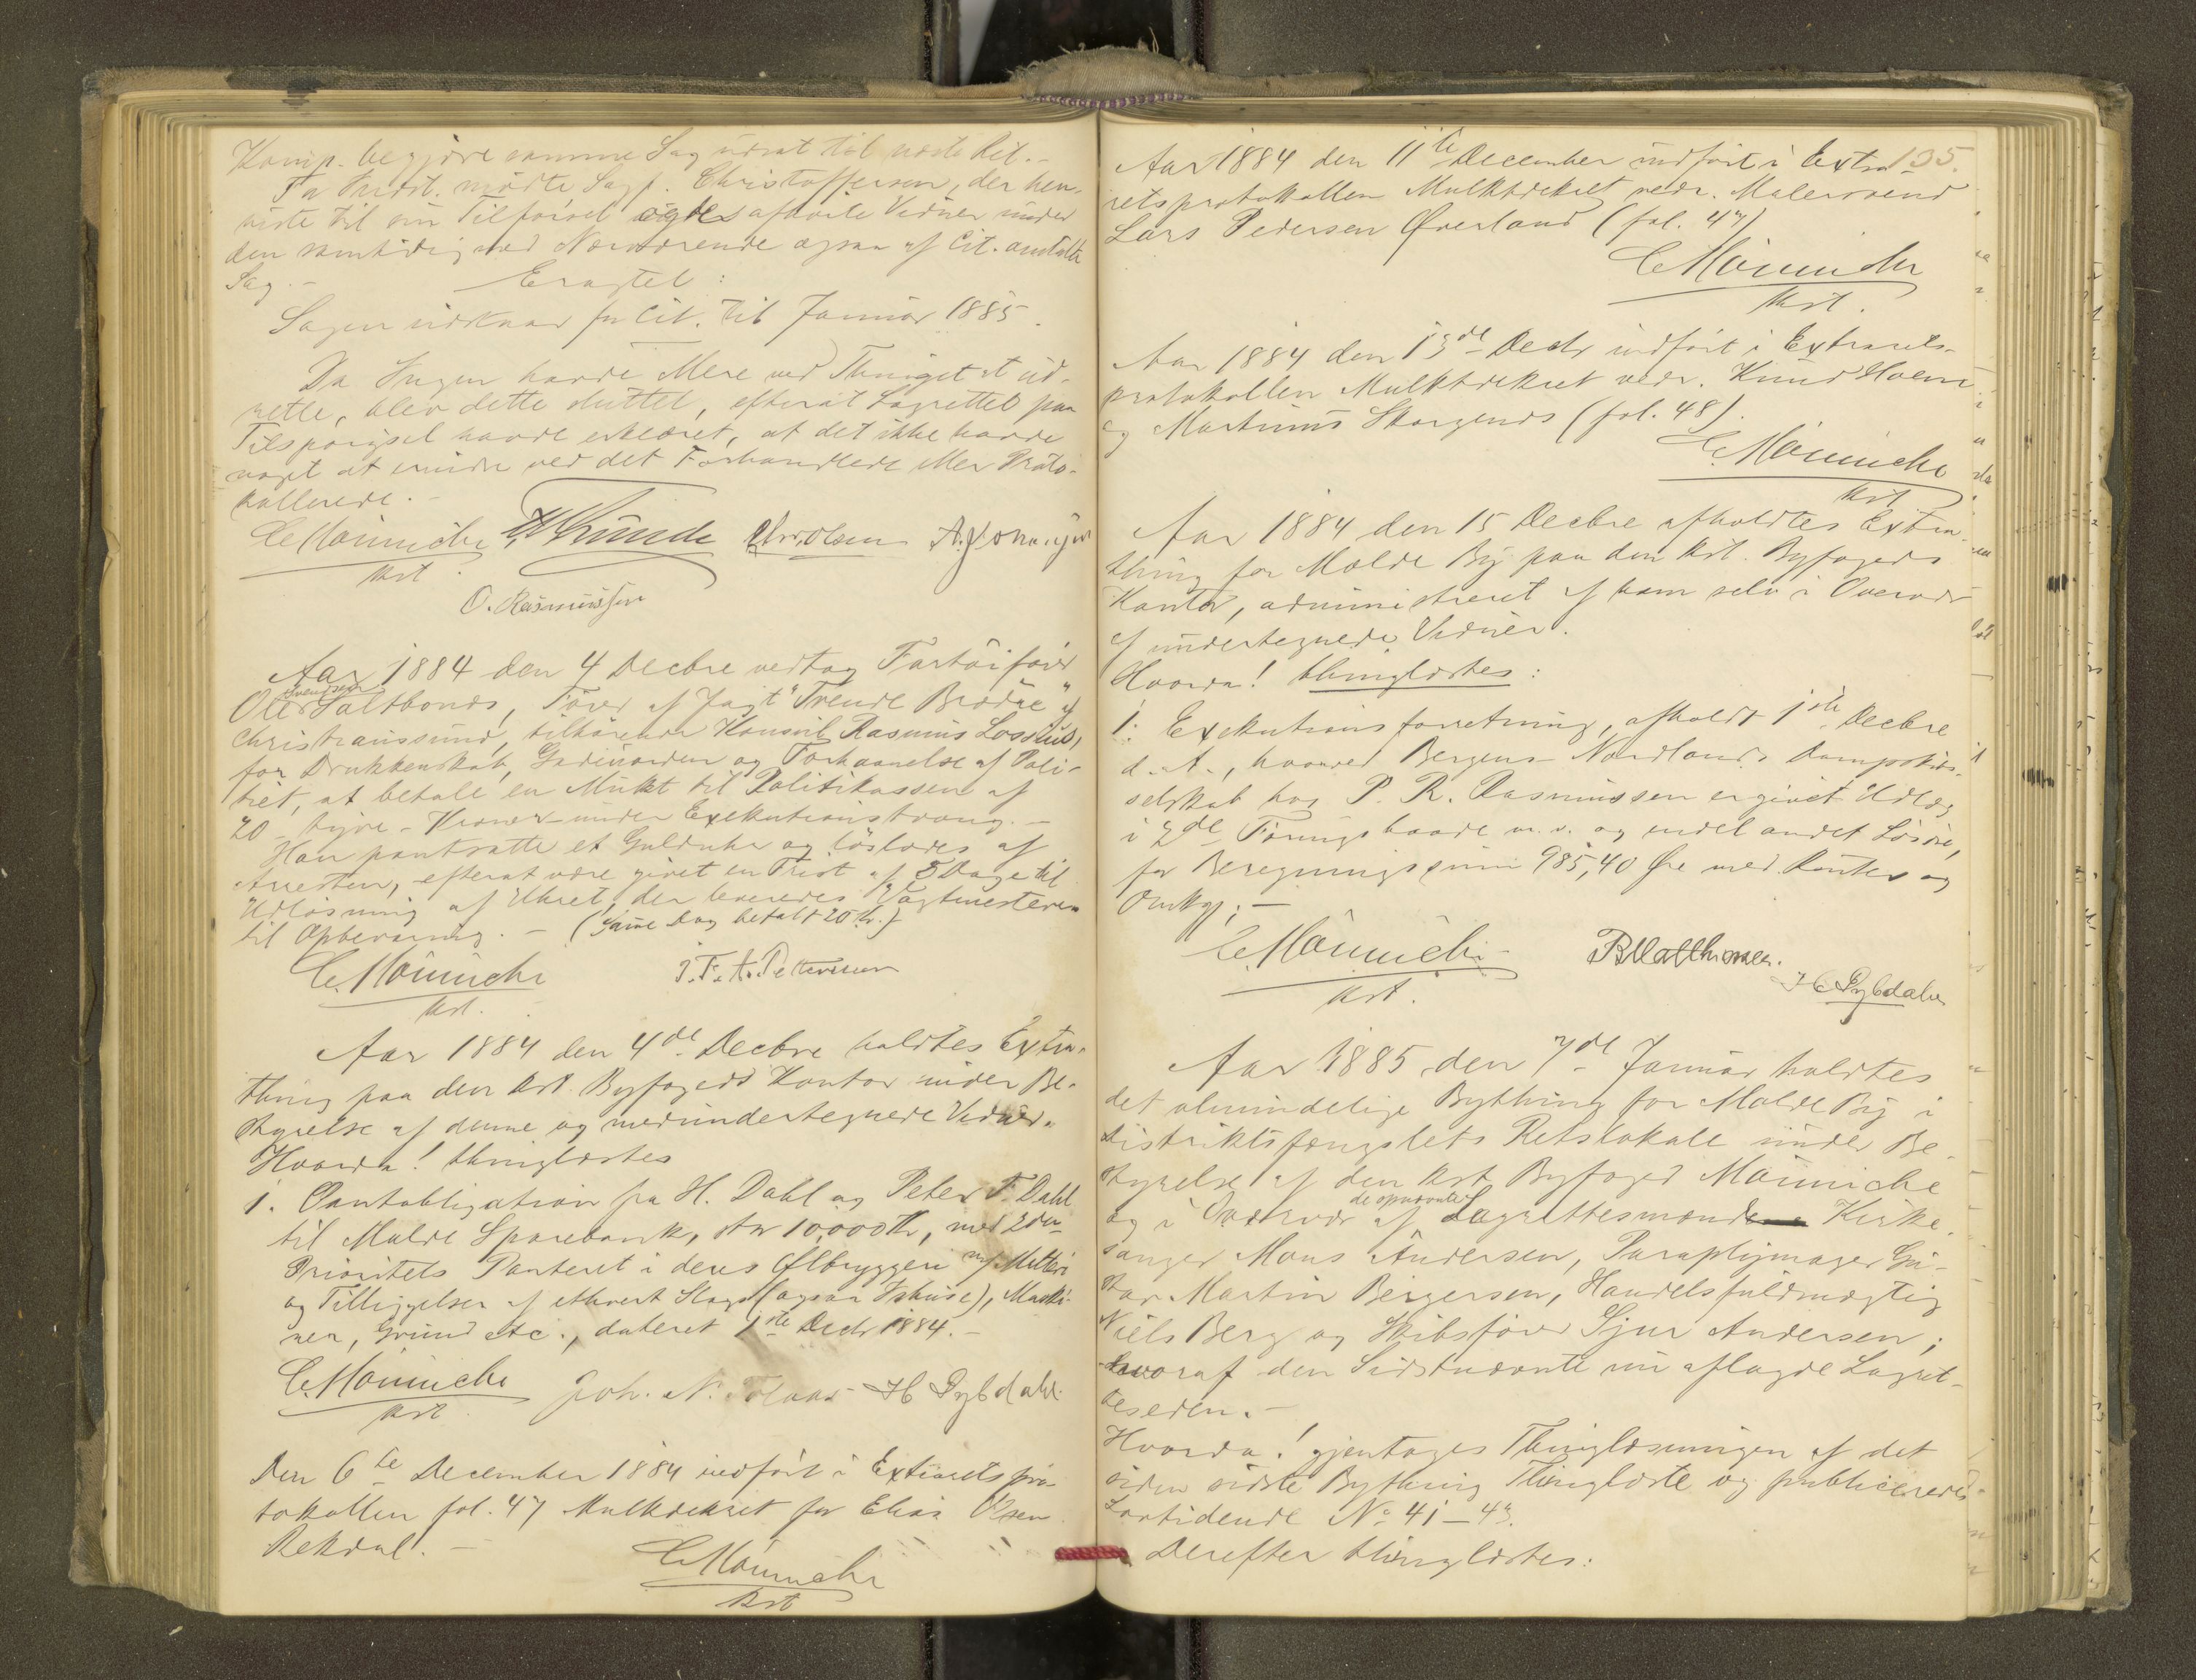 Komp. begjærede samme Sag udsat til næste Ret.-
Fa Indst. mødte Sagf. Christoffersen, der hen-
viste til sin Tilførsel og de afhørte Vidner under
den samtidig med Nærværende ogsaa af Cit. anstalte
Sag.-
Eragtet:
Sagen udstaar for Cit. til Januar 1885.
Da Ingen havde Mere ved Thinget at ud-
rette, blev dette sluttet, efterat Lagrettet paa
Tilspørgsel havde erklæret, at det ikke havde
noget at erindre ved det Forhandlede eller Proto-
kollerede.-
C. Mönniche Chr. Olsen
kst.
O. Rasmussen
Aar 1884 den 4 Decbre vedtog Fartöifører
Svendsen
Ole Saltbones, Förer af Jagt "Trende Brödre" af
Christianssund, tilhörende Konsul Rasmus Lossius,
for Drukkenskab, Gadeuorden og Forhaanelse af Poli-
tiet, at betale en Mulkt til Politikassen af
20 - tyve - Kroner - under Exekutionstvang.-
Han pantsatte et Gulduhr og löslodes af
Arresten, efterat være givet en Frist af 3 Dage til
Udlösning af Uhret, der leveredes Vagtmesteren
til Opbevaring. - (Same Dag betalt 20 Kr.)
C. Mönniche J. F. A. Pettersen
kst.
Aar 1884 den 4de Decbre holdtes Extra-
thing paa den kst. Byfogeds Kontor under Be-
styrelse af denne og medundertegnede Vidner.
Hvorda! thinglæstes
1. Pantobligation fra H. Dahl og Peter F. Dahl
til Molde Sparebank, stor 10,000 Kr, med 2den
Prioritets Panteret i deres Ølbryggeri m/ Malteri
og Tilliggelser af ethvert Slags (ogsaa Ishuse), Maski-
ner, Grund etc., dateret 1ste Decbr 1884.-
C. Mönniche Joh. N. H Dybdahl
kst.
Den 6te December 1884 indført i Extraretspro-
tokollen fol. 47 Mulktdekret for Elias Olsen
Rekdal.-
C. Mönniche
kst
135.
Aar 1884 den 11te December indført i Extra-
retsprotokollen Mulktdekret vedr. Malersvend
Lars Pedersen Øverland (fol. 47)
C. Mönniche
kst.
Aar 1884 den 13de Decbr indført i Extrarets-
protokollen Mulktdekret vedr. Knud Holm
og Martinus Skorgenes (fol. 48).
C. Mönniche
kst
Aar 1884 den 15 Decbre afholdtes Extra-
thing for Molde By paa den kst. Byfogeds
Kontor, administreret af ham selv i Overvær
af undertegnede Vidner.
Hvorda! thinglæstes:
1. Exekutionsforretning, afholdt 1ste Decbre
d. A., hvorved Bergens Nordlands Dampskibs-
selskab hos P. R. Rasmussen er givet Udlæg
i 2de Føringsbaade m. v. og endel andet Lösöre,
for Beregningssum 985,40 Øre med Renter og
Omkg; -
C. Mönniche H Dybdahl
kst.
Aar 1885 den 7de Januar holdtes
det almindelige Bything for Molde By i
Distriktsfængslets Retslokale under Be-
styrelse af den kst. Byfoged Mönniche
de opnævnte
og i Overvær af Lagrettesmænd Kirke-
sanger Mons Andersen, Paraplymager Gu-
stav Martin Birgersen, Handelsfuldmægtig
Niels Berg og Skibsfører Sjur Andersen;
hvoraf den Sidstnævnte nu aflagde Lagret-
teseden.-
Hvorda! gjentages Thinglæsningen af det
siden sidste Bything Thinglæste og publiceredes
Lovtidende No 41-43.
Derefter thinglæstes: